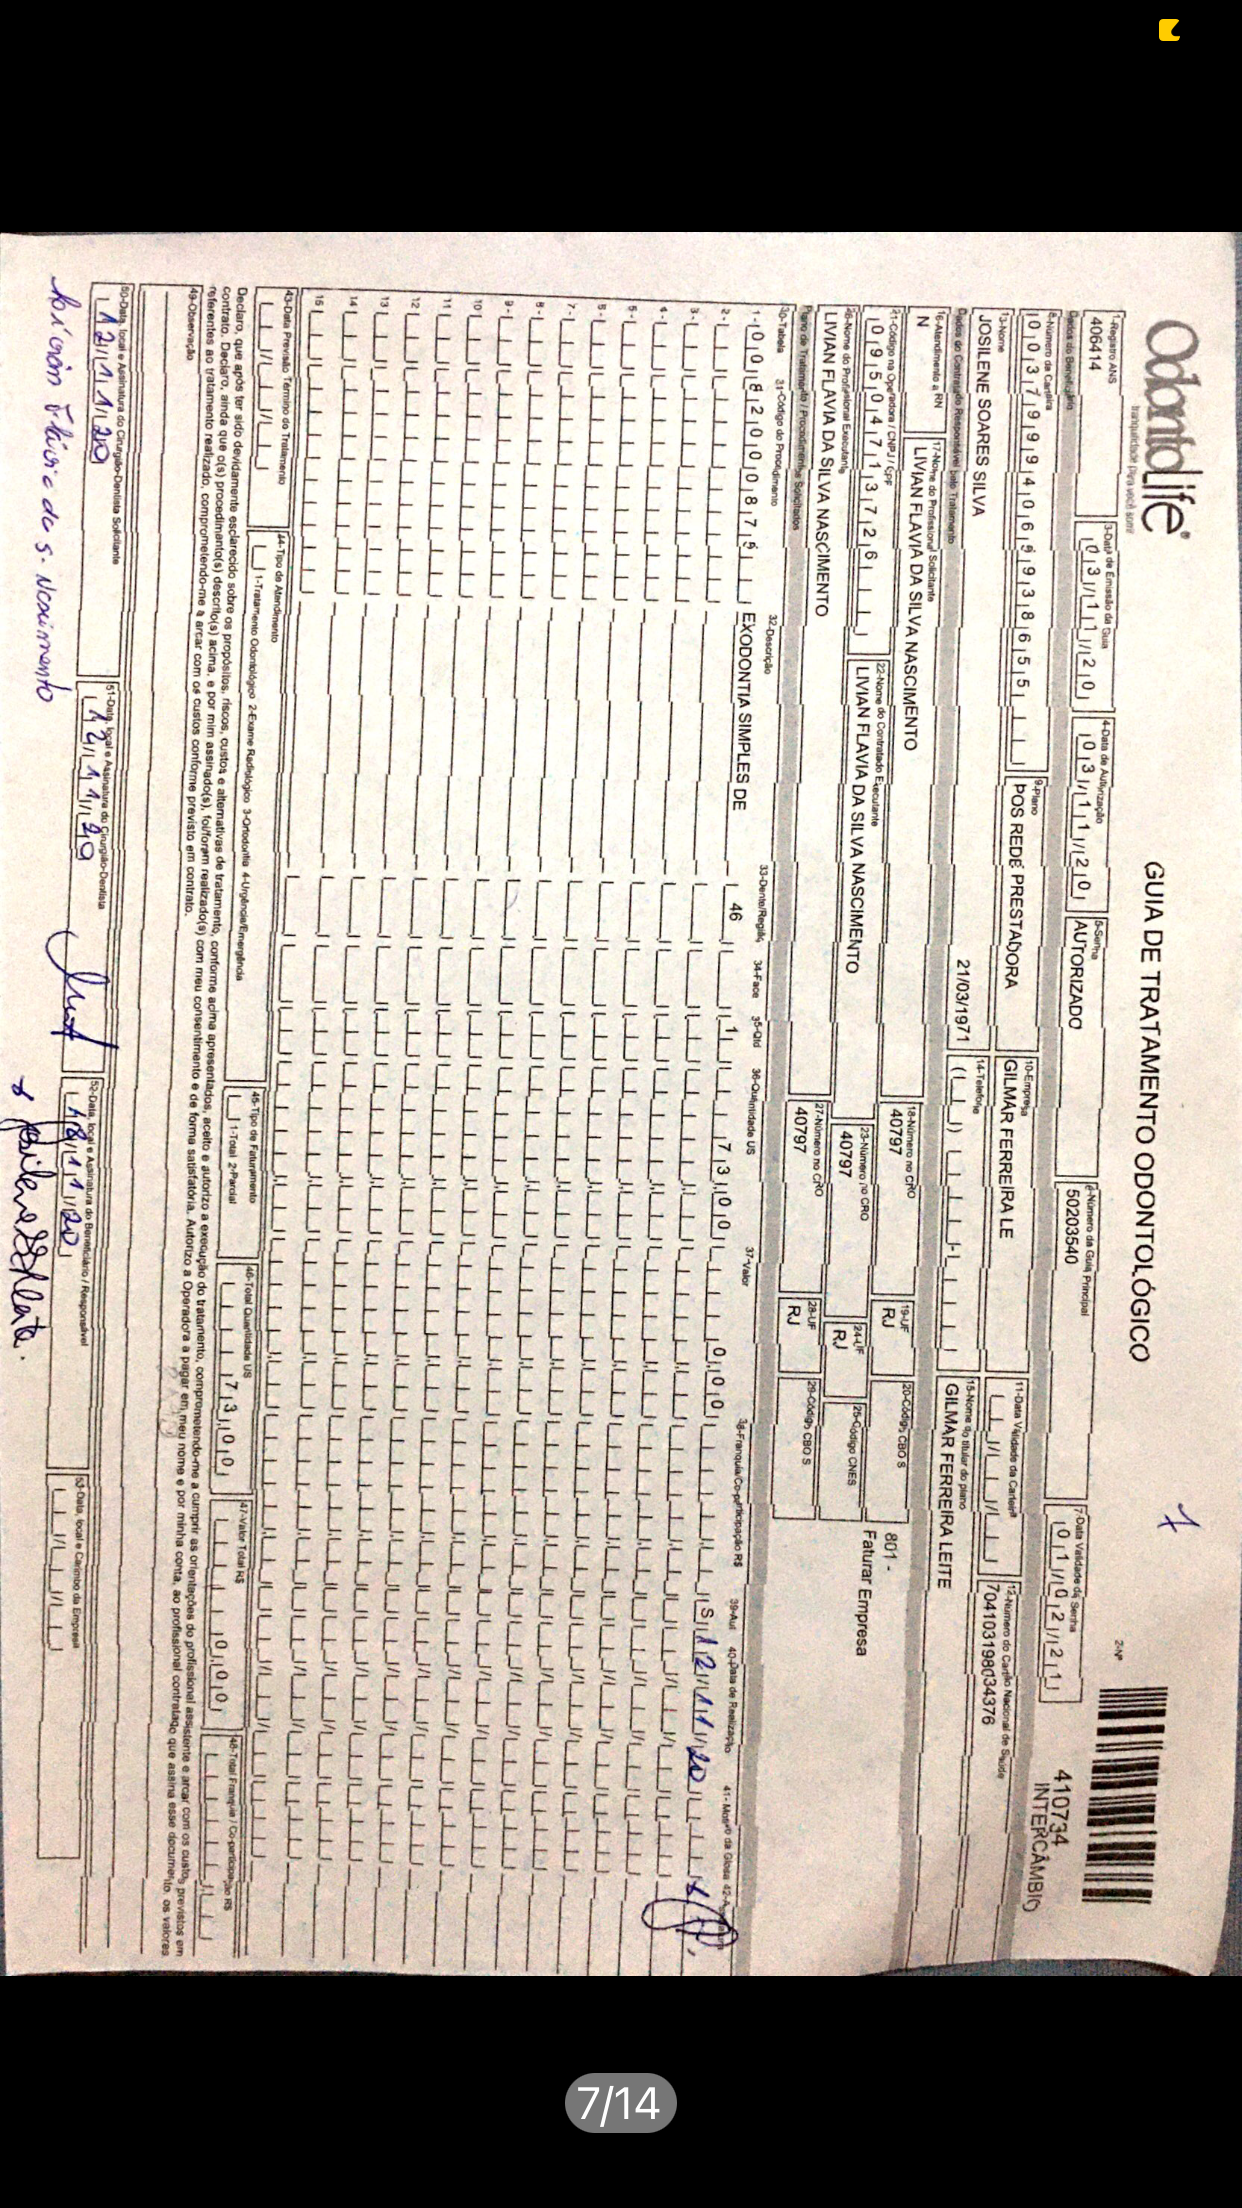 OdontoLife®
tranquilidade para você sorrir
GUIA DE TRATAMENTO ODONTOLÓGICO
7
2-Nº
410734
INTERCÂMBIO
1-Registro ANS
406414
3-Data de Emissão da Guia
03/11/20
4-Data de Autorização
03/11/20
5-Senha
AUTORIZADO
6-Número da Guia Principal
50203540
7-Data Validade da Senha
01/02/21
Dados do Beneficiário
8-Número da Carteira
00379994065938655
9-Plano
POS REDE PRESTADORA
10-Empresa
GILMAR FERREIRA LE
11-Data Validade da Carteira
12-Número do Cartão Nacional de Saúde
704103198034376
13-Nome
JOSILENE SOARES SILVA
21/03/1971
14-Telefone
15-Nome do titular do plano
GILMAR FERREIRA LEITE
Dados do Contratado Responsável pelo Tratamento
16-Atendimento a RN
N
17-Nome do Profissional Solicitante
LIVIAN FLAVIA DA SILVA NASCIMENTO
18-Número no CRO
40797
19-UF
RJ
20-Código CBO S
801 -
Faturar Empresa
21-Código na Operadora / CNPJ / CPF
09504713726
22-Nome do Contratado Executante
LIVIAN FLAVIA DA SILVA NASCIMENTO
23-Número no CRO
40797
24-UF
RJ
25-Código CNES
26-Nome do Profissional Executante
LIVIAN FLAVIA DA SILVA NASCIMENTO
27-Número no CRO
40797
28-UF
RJ
29-Código CBO S
Plano de Tratamento / Procedimentos Solicitados
30-Tabela 31-Código do Procedimento 32-Descrição 33-Dente/Região 34-Face 35-Qtd 36-Quantidade US 37-Valor 38-Franquia/Co-participação R$ 39-Aut 40-Data de Realização 41- Motivo da Glosa
1- 00 82000875 EXODONTIA SIMPLES DE 46 1 73,00 0,00 S 12/11/20
2-
3-
4-
5-
6-
7-
8-
9-
10
11
12
13
14
15
43-Data Previsão Término do Tratamento
44-Tipo de Atendimento
1-Tratamento Odontológico 2-Exame Radiológico 3-Ortodontia 4-Urgência/Emergência
45-Tipo de Faturamento
1-Total 2-Parcial
46-Total Quantidade US
73,00
47-Valor Total R$
0,00
48-Total Franquia / Co-participação R$
Declaro, que após ter sido devidamente esclarecido sobre os propósitos, riscos, custos e alternativas de tratamento, conforme acima apresentados, aceito e autorizo a execução do tratamento, comprometendo-me a cumprir as orientações do profissional assistente e arcar com os custos previstos em
contrato. Declaro, ainda que o(s) procedimento(s) descrito(s) acima, e por mim assinado(s), foi/foram realizado(s) com meu consentimento e de forma satisfatória. Autorizo a Operadora a pagar em meu nome e por minha conta, ao profissional contratado que assina esse documento, os valores
referentes ao tratamento realizado, comprometendo-me a arcar com os custos conforme previsto em contrato.
49-Observação
50-Data, local e Assinatura do Cirurgião-Dentista Solicitante
12/11/20
51-Data, local e Assinatura do Cirurgião-Dentista
12/11/20
52-Data, local e Assinatura do Beneficiário / Responsável
53-Data, local e Carimbo da Empresa
7/14